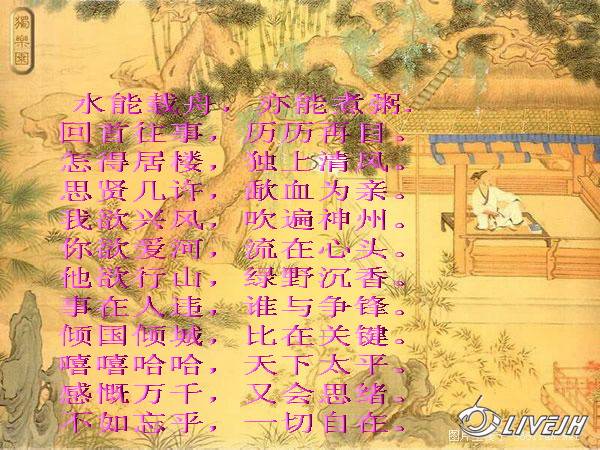 獨樂園
水能载舟，亦能煮粥.
回首往事，历历再目。
怎得居楼，独上清风。
思贤几许，歃血为亲。
我欲兴风，吹遍神州。
你欲爱河，流在心头。
他欲行山，绿野沉香。
事在人违，谁与争锋。
倾国倾城，比在关键。
嘻嘻哈哈，天下太平。
感慨万千，又会思绪。
不如忘乎，一切自在。
LIVEJH